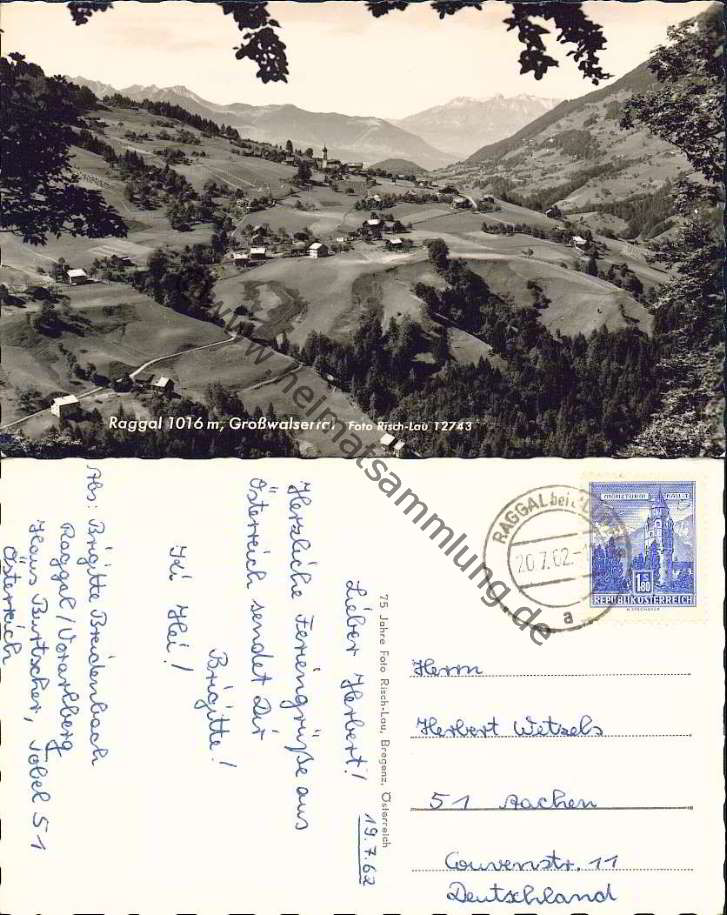 Raggal 1016 m, Großwalsertal Foto Risch-Lau 12743
www.heimatsammlung.de
Abs: Brigitte Breidenbach
Raggal/Vorarlberg
Haus Burtscher, Tobel 51
Österreich
19.7.62
Lieber Herbert!
Herzliche Feriengrüße aus
Österreich sendet Dir
Brigitte!
Hei!
75 Jahre Foto Risch-Lau, Bregenz, Österreich
RAGGAL bei
20.7.62
a
MÜNZTURM HALL I. T.
S
1.80
REPUBLIK ÖSTERREICH
Herrn
Herbert Wetzels
51 Aachen
Couvenstr. 11
Deutschland